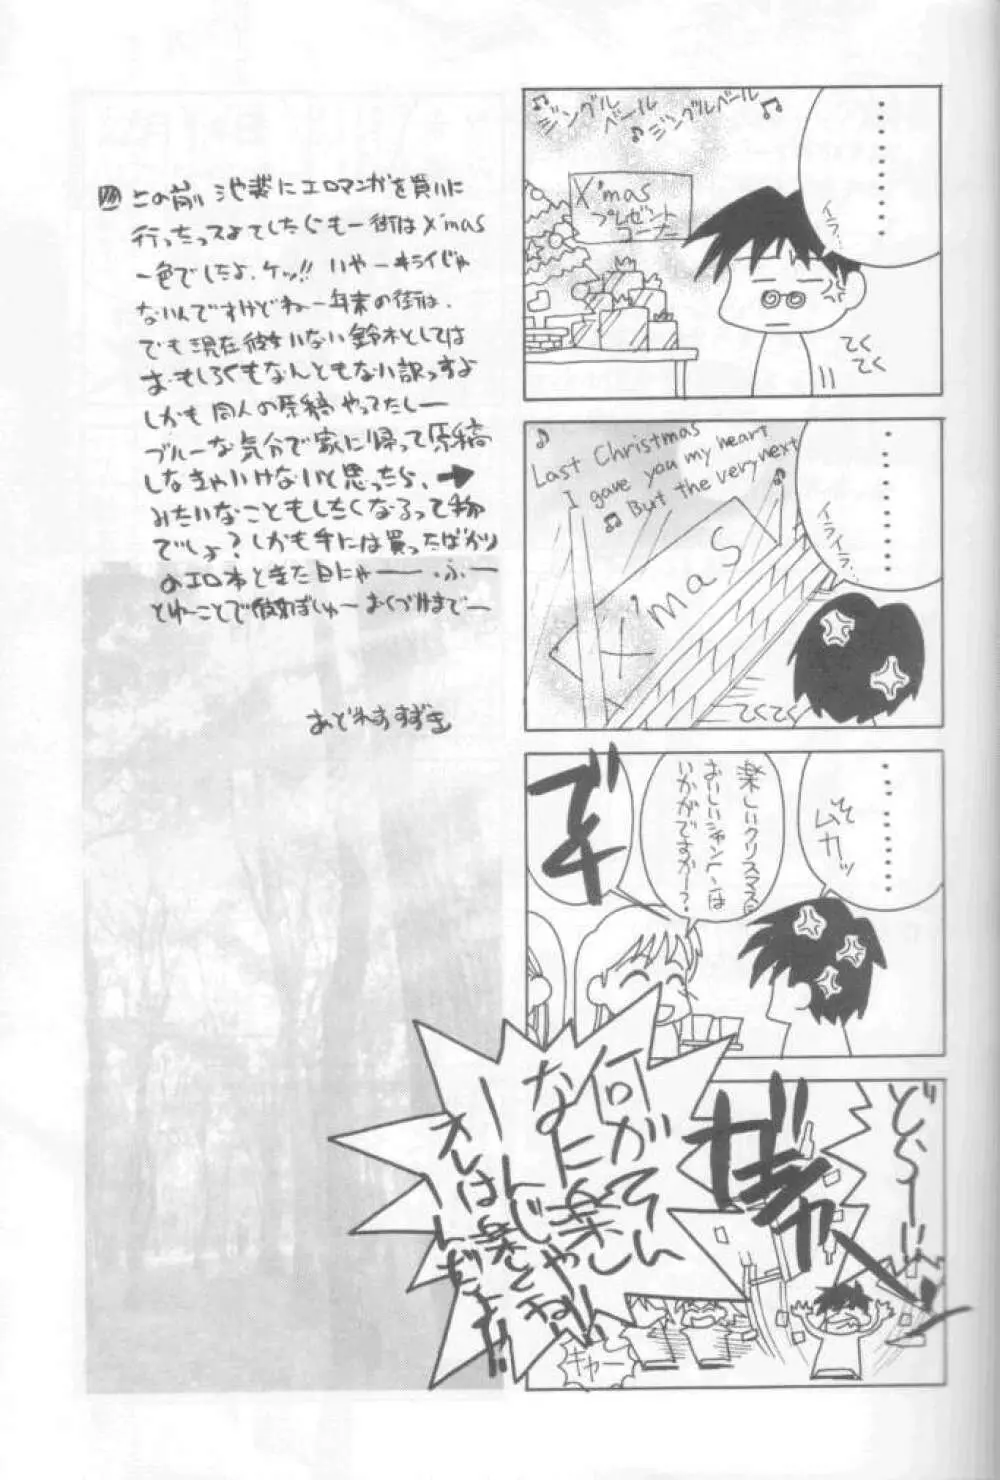 ♪ジングル
ベール
♪ジングルベール♪
X'mas
プレゼント
コーナー
イライラ…
てく
てく
♪
Last Christmas
I gave you my heart
♫But the very next♪
X'mas
イライラ…
てくてく
ムカッ
楽しいクリスマスに
おいしいシャンペンは
いかがですかー?
どらーっ!!
何がてん
なに楽しい
んじゃ
オレは
キャー
この前 池袋にエロマンガを買いに
行ったっスよ そしたらもー街はX'mas
一色でしたよ、ケッ!! いやーキライじゃ
ないんですけどねー年末の街は、
でも現在彼女いない鈴木としては
おもしろくもなんともない訳っすよ
しかも同人の原稿やってたしー
ブルーな気分で家に帰って原稿
しなきゃいけないと思ったら、→
みたいなこともしたくなるって物
でしょ?しかも手には買ったばかり
のエロ本ときた日にゃー――、ふー
とゆーことで彼女ぼしゅー おくづけまでー
あどれすすずき